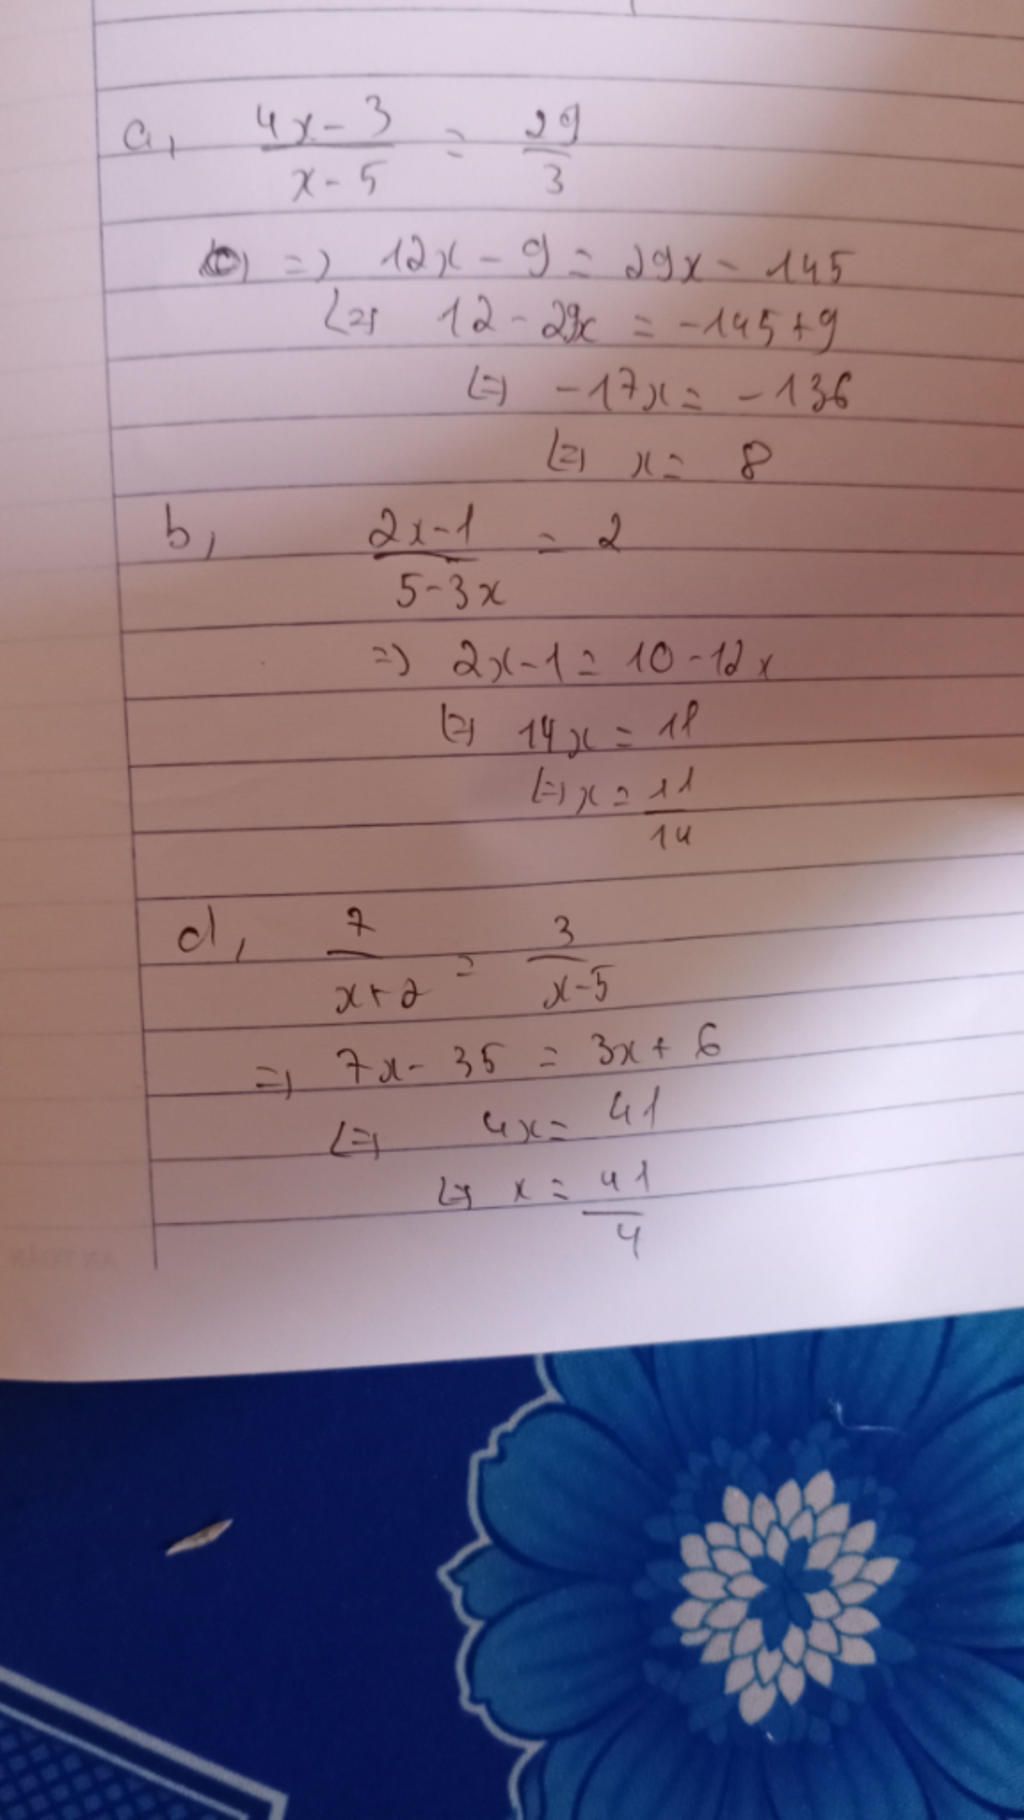 a, (4x-3)/(x-5) = 29/3
=> 12x - 9 = 29x - 145
<=> 12 - 29x = -145+9
<=> -17x = -136
<=> x = 8
b, (2x-1)/(5-3x) = 2
=> 2x-1 = 10-12x
<=> 14x = 11
<=> x = 11/14
d, 7/(x+2) = 3/(x-5)
=> 7x - 35 = 3x + 6
<=> 4x = 41
<=> x = 41/4